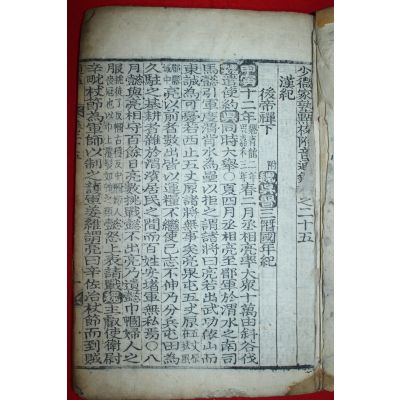 少微家塾點校附音通鑑 之二十五
漢紀
後帝禪下 附 魏吳晉 三僭國年紀
十二年 春二月丞相亮率大衆十萬由斜谷伐
遣使約 同時大擧○夏四月丞相亮至郿軍於渭水之南司
馬懿引軍渡渭背水爲壘以拒之謂諸將曰亮若出武功依山而
東誠爲可憂若西止五丈原諸將無事矣亮果屯五丈原
亮以前者數出皆以運糧不繼使己志不伸乃分兵屯田爲
久駐之基耕者雜於渭濱居民之間而百姓安堵軍無私焉○八
月懿與亮相守百餘日亮數挑戰懿不出亮乃遺懿巾幗婦人之
服 懿怒上表請戰 主叡使衛尉
辛毗杖節爲軍師以制之護軍姜維謂亮曰辛佐治杖節而到賊